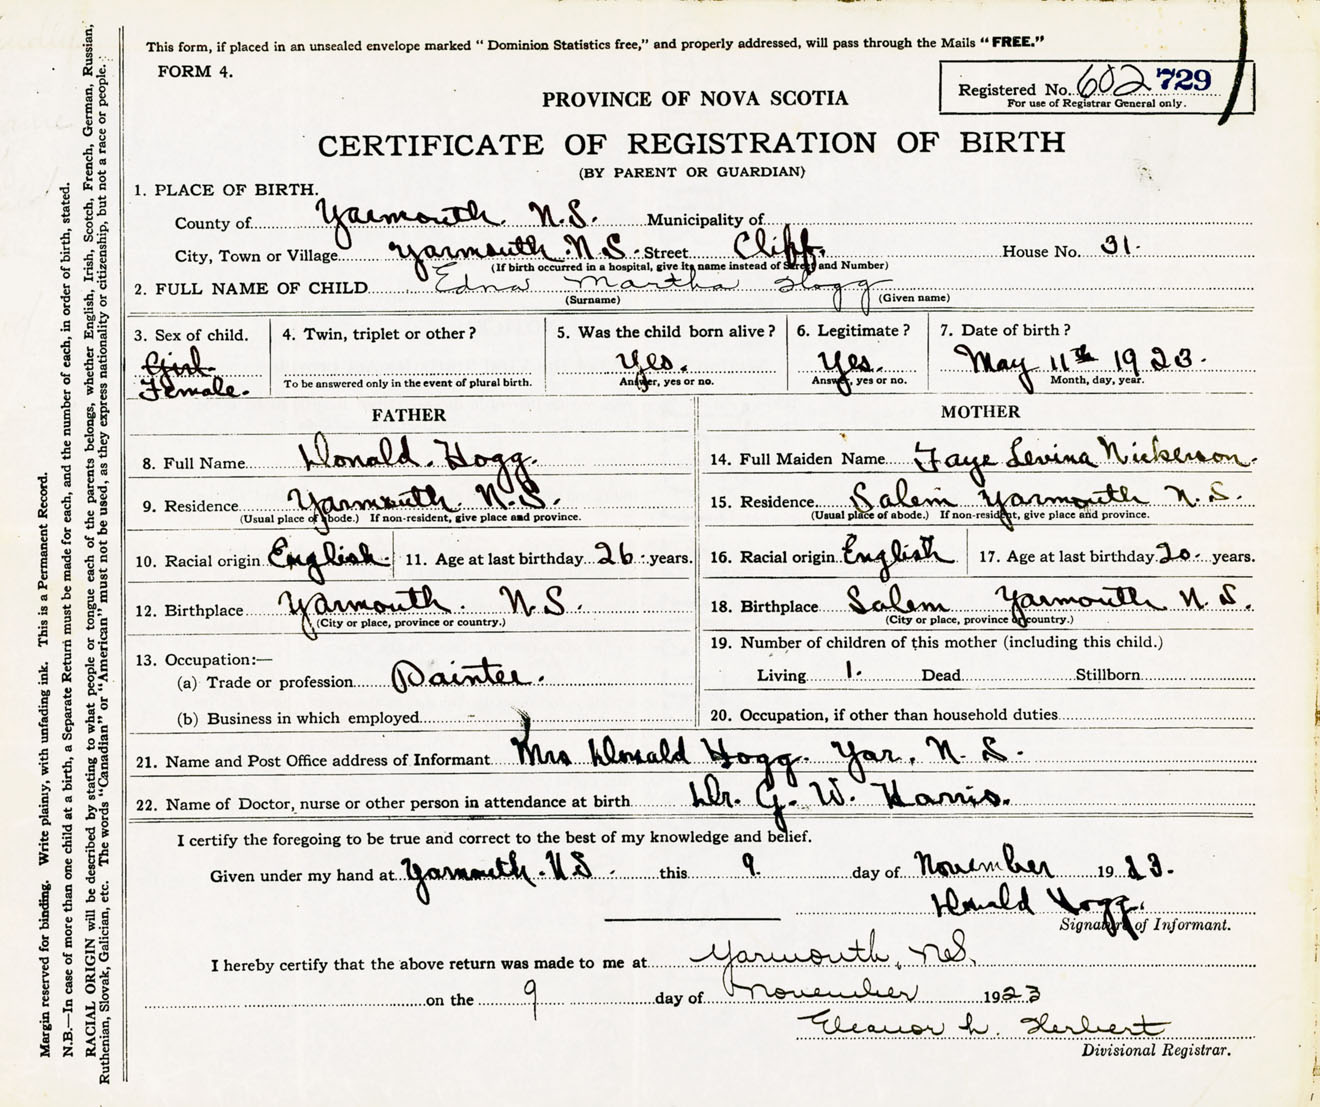 This form, if placed in an unsealed envelope marked “ Dominion Statistics free,” and properly addressed, will pass through the Mails “ FREE.”
FORM 4.
Registered No. 602 729
For use of Registrar General only.
PROVINCE OF NOVA SCOTIA
CERTIFICATE OF REGISTRATION OF BIRTH
(BY PARENT OR GUARDIAN)
1. PLACE OF BIRTH.
County of Yarmouth. N.S. Municipality of
City, Town or Village Yarmouth N.S. Street Cliff. House No. 31.
(If birth occurred in a hospital, give its name instead of Street and Number)
2. FULL NAME OF CHILD Edna Martha Hogg
(Surname) (Given name)
3. Sex of child. 4. Twin, triplet or other ? 5. Was the child born alive ? 6. Legitimate ? 7. Date of birth ?
Girl. Yes. Yes. May 11th 1923.
Female. To be answered only in the event of plural birth. Answer, yes or no. Answer, yes or no. Month, day, year.
FATHER MOTHER
8. Full Name Donald. Hogg. 14. Full Maiden Name Faye Levina Nickerson.
9. Residence Yarmouth. N.S. 15. Residence Salem Yarmouth N.S.
(Usual place of abode.) If non-resident, give place and province. (Usual place of abode.) If non-resident, give place and province.
10. Racial origin English. 11. Age at last birthday 26 years. 16. Racial origin English 17. Age at last birthday 20 years.
12. Birthplace Yarmouth. N.S. 18. Birthplace Salem Yarmouth N.S.
(City or place, province or country.) (City or place, province or country.)
13. Occupation:— 19. Number of children of this mother (including this child.)
(a) Trade or profession Painter. Living 1. Dead Stillborn
(b) Business in which employed 20. Occupation, if other than household duties
21. Name and Post Office address of Informant Mrs Donald Hogg. Yar. N.S.
22. Name of Doctor, nurse or other person in attendance at birth Dr. G. W. Harris.
I certify the foregoing to be true and correct to the best of my knowledge and belief.
Given under my hand at Yarmouth. N.S. this 9. day of November 1923.
Donald Hogg.
Signature of Informant.
I hereby certify that the above return was made to me at Yarmouth, N.S.
on the 9 day of November 1923
Eleanor L. Herbert
Divisional Registrar.
Margin reserved for binding. Write plainly, with unfading ink. This is a Permanent Record.
N.B.—In case of more than one child at a birth, a Separate Return must be made for each, and the number of each, in order of birth, stated.
RACIAL ORIGIN will be described by stating to what people or tongue each of the parents belongs, whether English, Irish, Scotch, French, German, Russian,
Ruthenian, Slovak, Galician, etc. The words “Canadian” or “American” must not be used, as they express nationality or citizenship, but not a race or people.